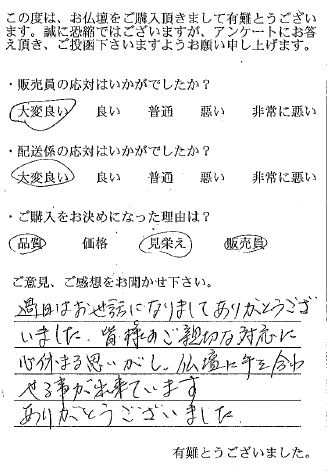 この度は、お仏壇をご購入頂きまして有難とうござい
ます。誠に恐縮ではございますが、アンケートにお答
え頂き、ご投函下さいますようお願い申し上げます。
・販売員の応対はいかがでしたか？
大変良い 良い 普通 悪い 非常に悪い
・配送係の応対はいかがでしたか？
大変良い 良い 普通 悪い 非常に悪い
・ご購入をお決めになった理由は？
品質 価格 見栄え 販売員
ご意見、ご感想をお聞かせ下さい。
過日はお世話になりましてありがとうござ
いました。皆様のご親切な対応に
心休まる思いがし、仏壇に手を合わ
せる事が出来ています
ありがとうございました。
有難とうございました。